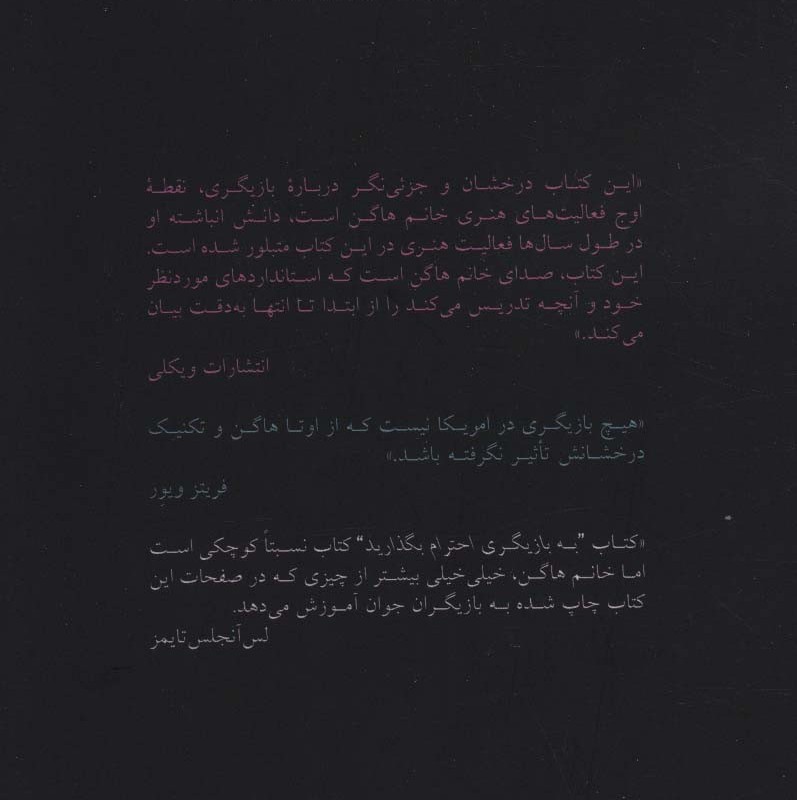 «این کتاب درخشان و جزئی‌نگر دربارهٔ بازیگری، نقطهٔ
اوج فعالیت‌های هنری خانم هاگن است، دانش انباشته او
در طول سال‌ها فعالیت هنری در این کتاب متبلور شده است.
این کتاب، صدای خانم هاگن است که استانداردهای موردنظر
خود و آنچه تدریس می‌کند را از ابتدا تا انتها به‌دقت بیان
می‌کند.»
انتشارات ویکلی
«هیچ بازیگری در امریکا نیست که از اوتا هاگن و تکنیک
درخشانش تأثیر نگرفته باشد.»
فریتز ویور
«کتاب ”به بازیگری احترام بگذارید“ کتاب نسبتاً کوچکی است
اما خانم هاگن، خیلی‌خیلی بیشتر از چیزی که در صفحات این
کتاب چاپ شده به بازیگران جوان آموزش می‌دهد.
لس‌آنجلس‌تایمز